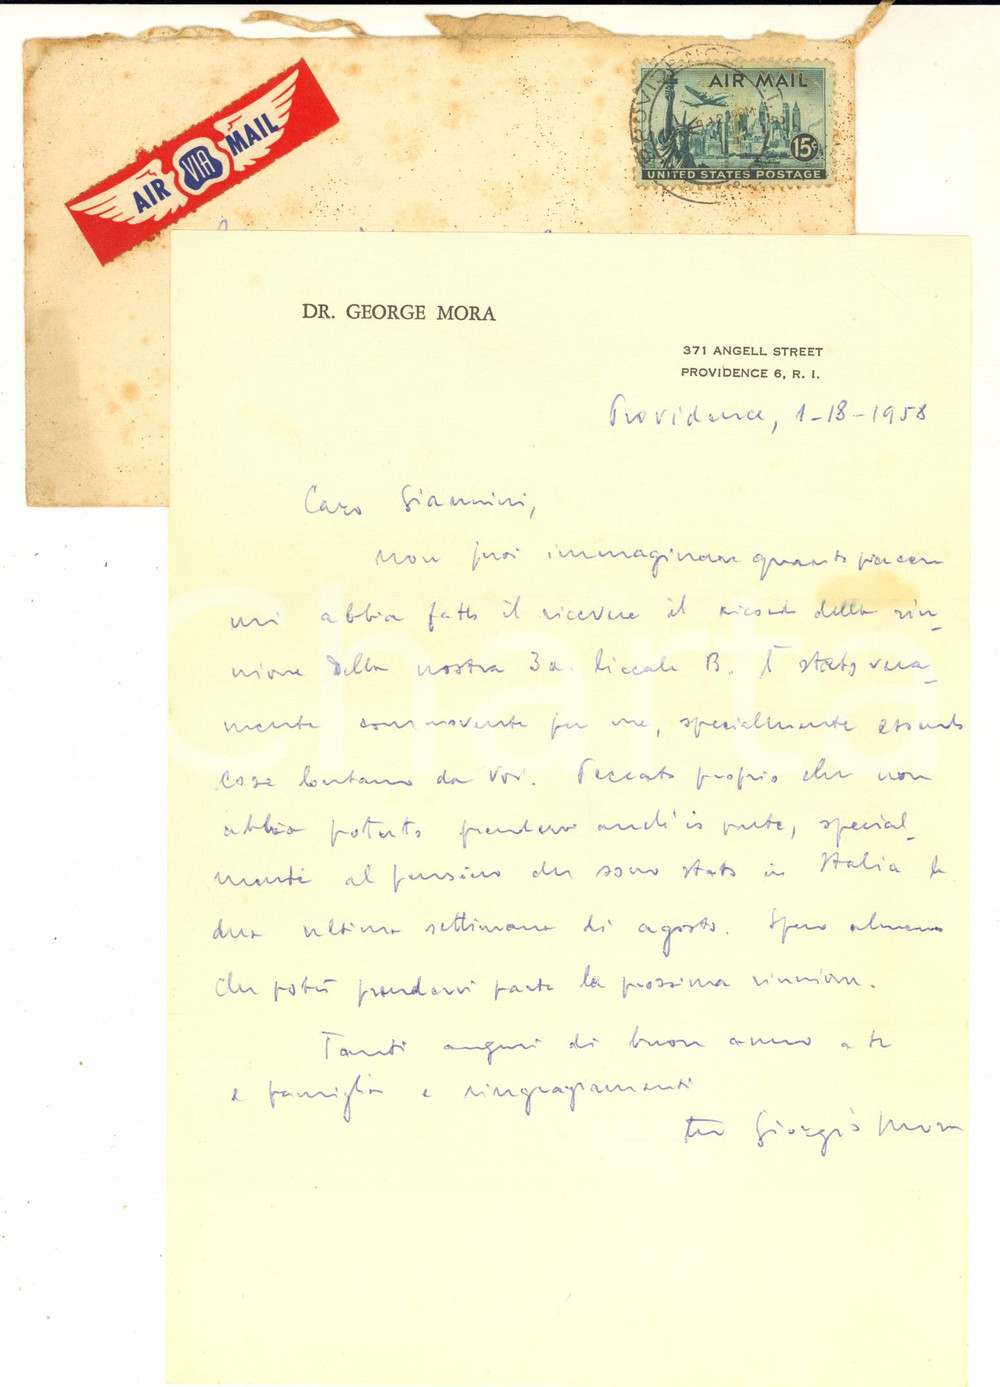 AIR VIA MAIL
AIR MAIL
15¢
UNITED STATES POSTAGE
DR. GEORGE MORA
371 ANGELL STREET
PROVIDENCE 6, R. I.
Providence, 1-18-1958
Caro Giannini,
non puoi immaginare quanto piacere
mi abbia fatto il ricevere il ricordo della riu-
nione della nostra 3a liceale B. È stato vera-
mente commovente per me, specialmente essendo
così lontano da voi. Peccato proprio che non
abbia potuto prendervi anch'io parte, special-
mente al pensiero che sono stato in Italia le
due ultime settimane di agosto. Spero almeno
che potrò prendervi parte la prossima riunione.
Tanti auguri di buon anno a te
e famiglia e ringraziamenti
tuo Giorgio Mora
Charta